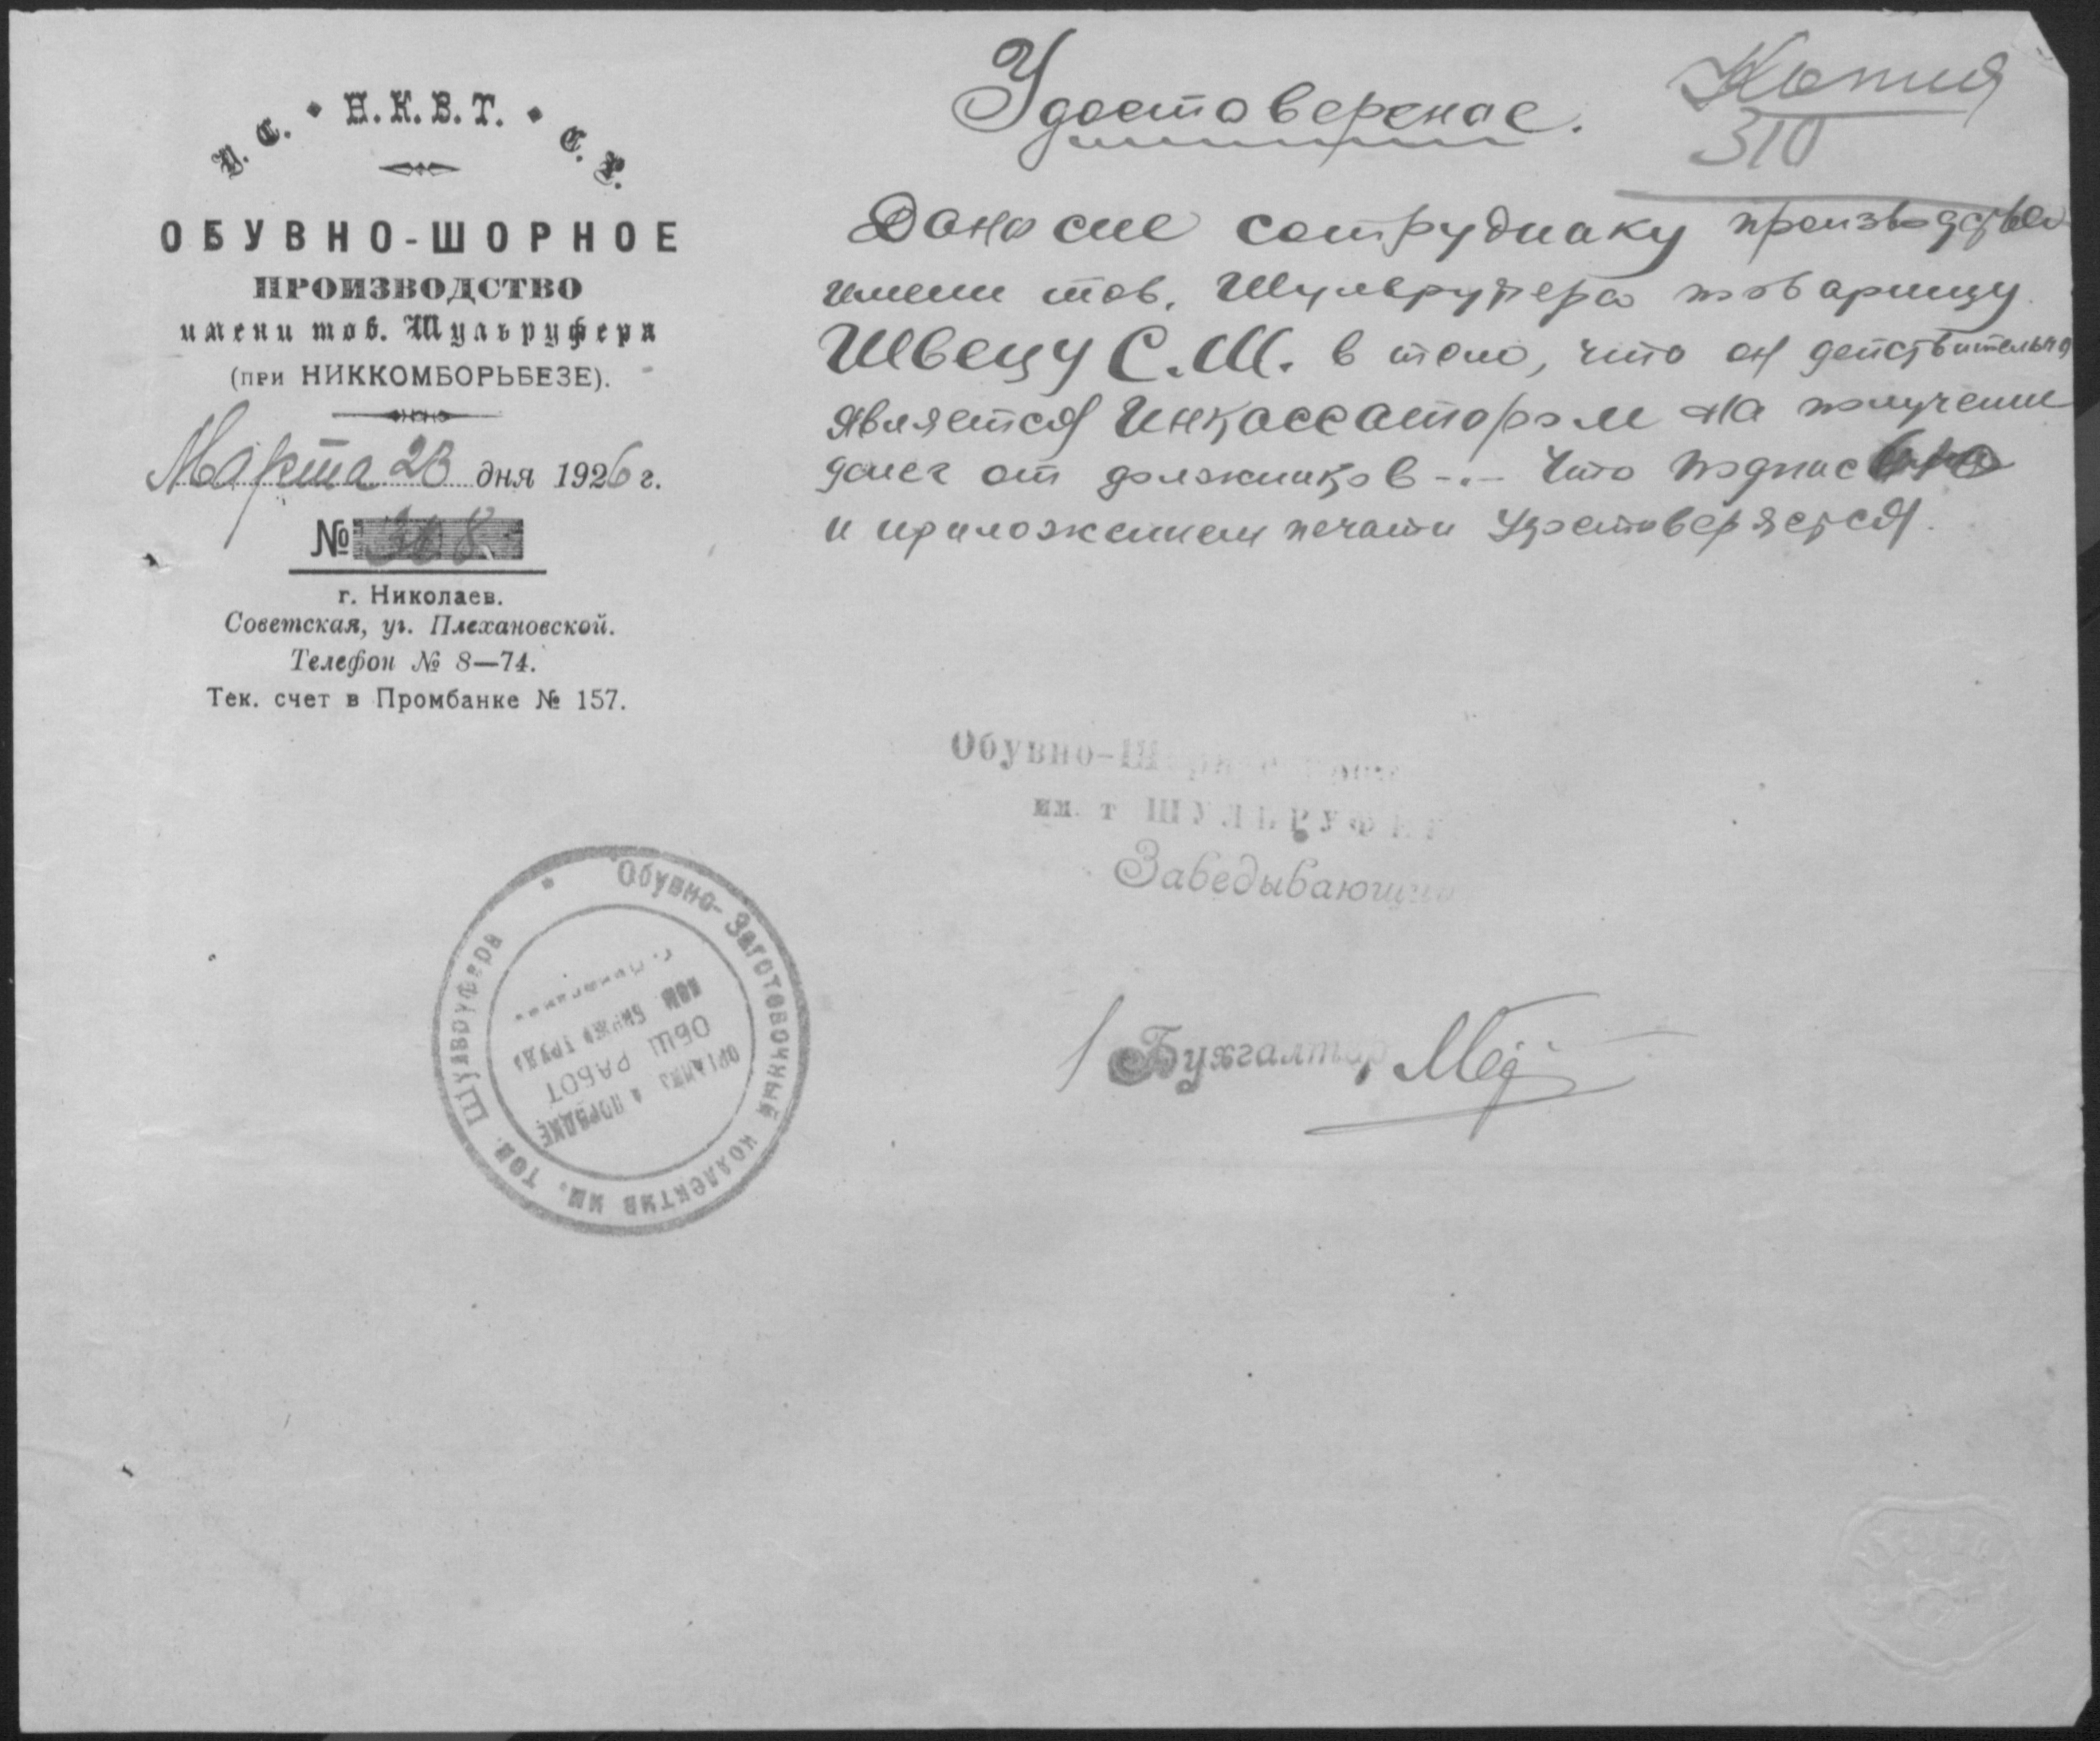 У. С. • Н.К.В.Т. • С. Р.
ОБУВНО-ШОРНОЕ
ПРОИЗВОДСТВО
имени тов. Шульруфера
(при НИККОМБОРЬБЕЗЕ).
Марта 23 дня 1926 г.
№ 308
г. Николаев.
Советская, уг. Плехановской.
Телефон № 8—74.
Тек. счет в Промбанке № 157.
Копия
310
Удостоверение.
Дано сие сотруднику производства
имени тов. Шульруфера товарищу
Швецу С.Ш. в том, что он действительно
является Инкассатором на получение
денег от должников -.- Что подписью
и приложением печати удостоверяется.
Обувно-Шорное
им. т ШУЛЬРУФЕР
Заведывающий
Бухгалтер
Обувно-Заготовочный коллектив им. тов. Шульруфера
ОРГАНИЗ. В ПОРЯДКЕ
ОБЩ РАБОТ
КОМ БИРЖО ТРУДА